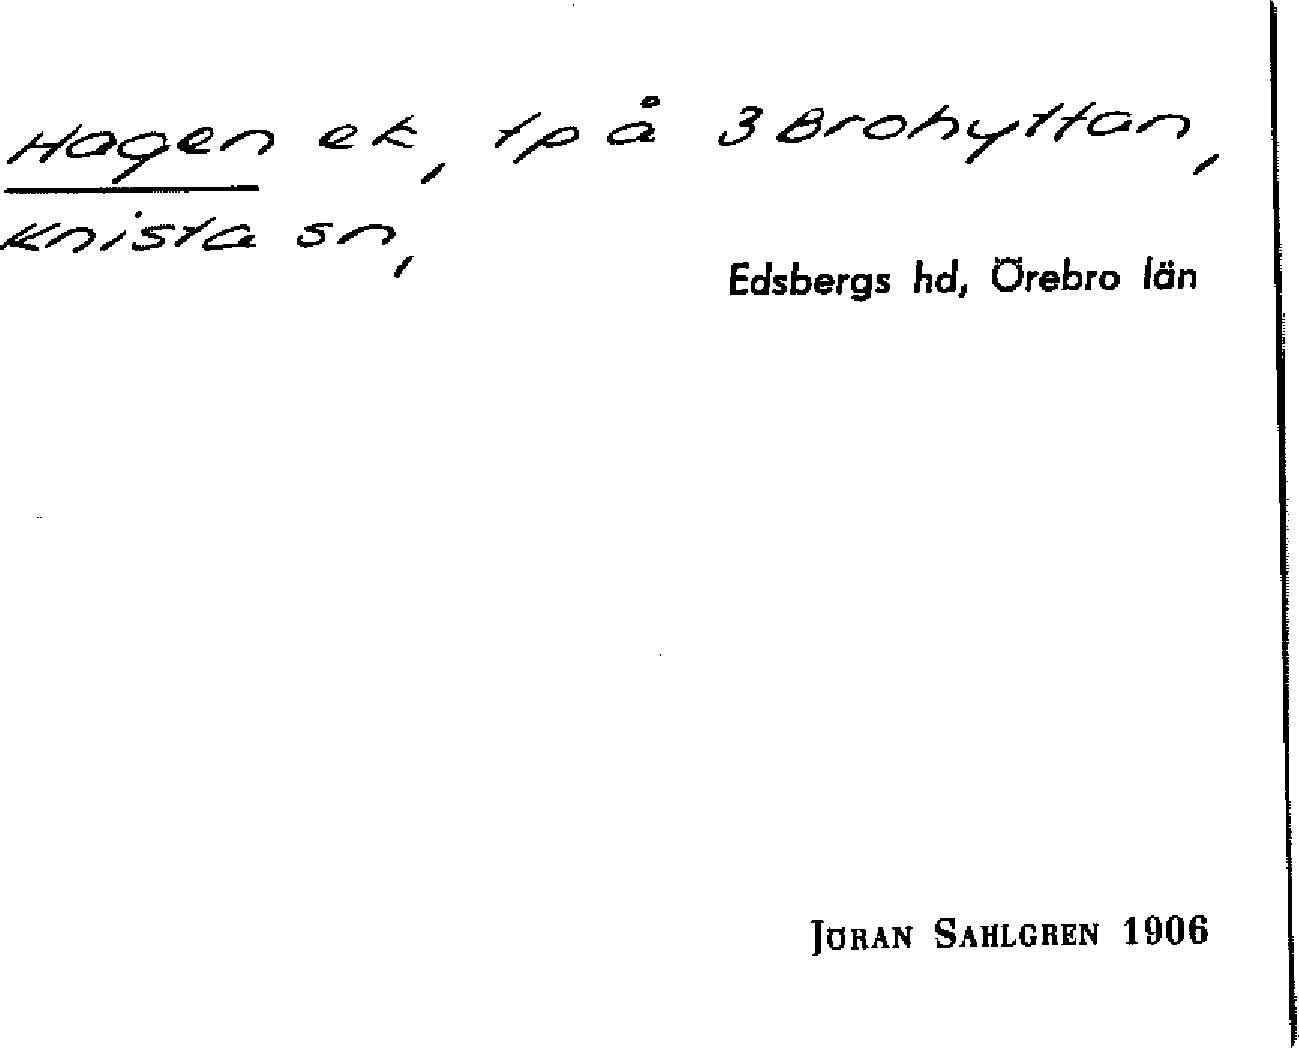 Hagen ek, tp å 3 Brohyttan,
Knista sn,
Edsbergs hd, Örebro län
JÖRAN SAHLGREN 1906